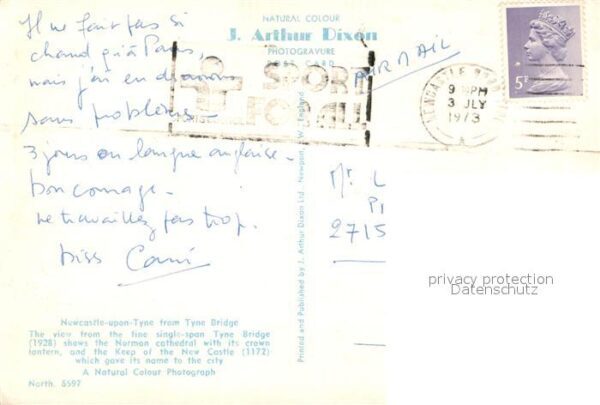 Il ne fait pas si
chaud qu'à Paris,
mais j'ai en
sans problème -
3 jours en langue anglaise -
bon courage -
Ne travaillez pas trop.
biss
NATURAL COLOUR
J. Arthur Dixon
PHOTOGRAVURE
POST CARD
AIR MAIL
SPORT
FOR ALL
9 PM
3 JLY
1973
5P
Printed and Published by J. Arthur Dixon Ltd. Newport, I.W. England
Mr L
2715
privacy protection
Datenschutz
Newcastle-upon-Tyne from Tyne Bridge
The view from the fine single-span Tyne Bridge
(1928) shows the Norman cathedral with its crown
lantern, and the Keep of the New Castle (1172)
which gave its name to the city
A Natural Colour Photograph
North. 5597